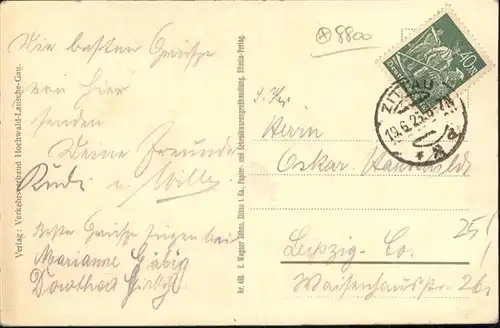 ⊕ 8800
Die besten Grüsse
von hier
senden
Deine Freunde
Rudi u. Willy
Beste Grüsse fügen bei
Marianne
Dorothea
Verlag: Verkehrsverband Hochwald-Lausche-Gau.
Nr. 453. E. Wagner Söhne, Zittau i. Sa., Papier- und Schreibwarengroßhandlung, Silesia-Verlag.
40 M
ZITTAU
19.6.23
Herrn
Oskar
Leipzig-Co.
Waisenhausstr. 26
25/